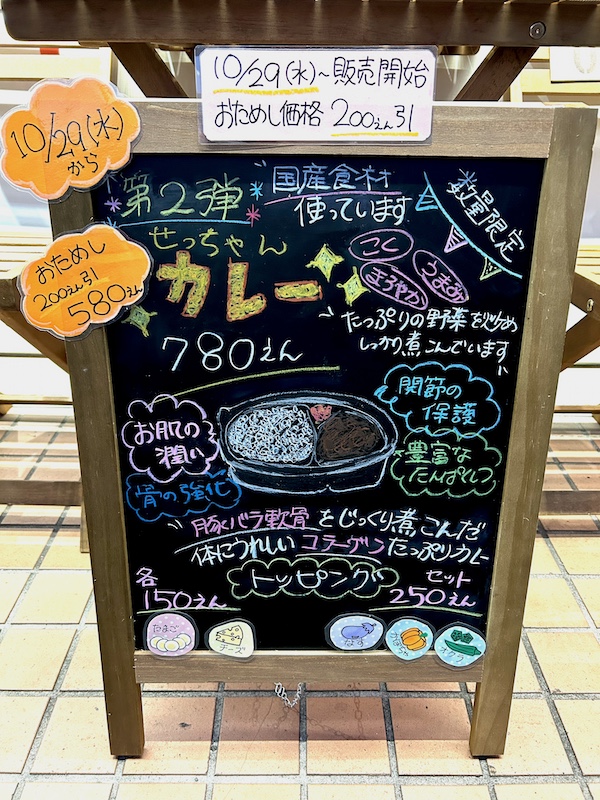 10/29(水)~販売開始
おためし価格 200えん引
10/29(水)
から
おためし
200えん引
580えん
第2弾
国産食材
使っています
数量限定
せっちゃん
カレー
こく
まろやか
うまみ
780えん
たっぷりの野菜を炒め
しっかり煮こんでいます
お肌の
潤い
骨の強化
関節の
保護
豊富な
たんぱくしつ
豚バラ軟骨をじっくり煮こんだ
体にうれしいコラーゲンたっぷりカレー
トッピング
各
150えん
セット
250えん
たまご
チーズ
なす
かぼちゃ
オクラ